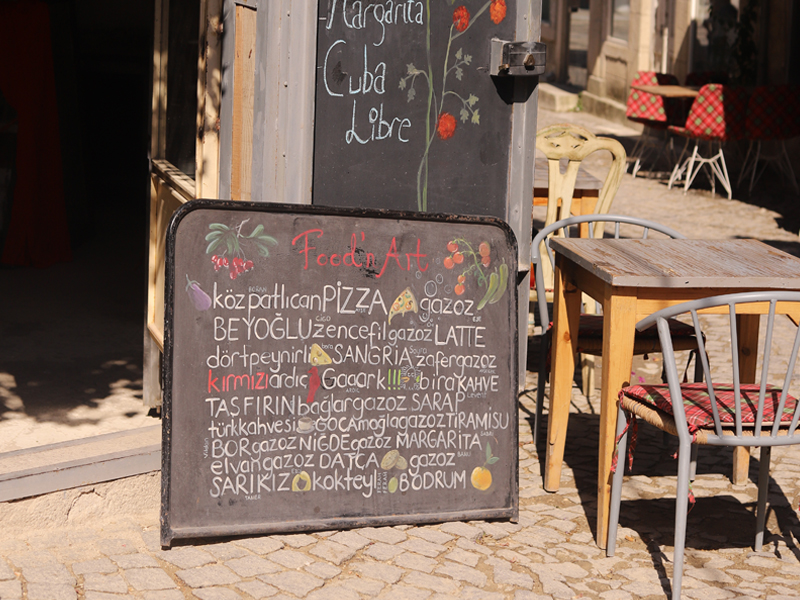 Margarita
Cuba
Libre
Food'n Art
közpatlıcanPİZZA gazoz
BEYOĞLUzencefilgazozLATTE
dörtpeynirliSANGRIAzafergazoz
kırmızıardıç Gaaark!!! biraKAHVE
TAŞFIRINbağlargazoz ŞARAP
türkkahvesiGOÇAmoğlagazozTİRAMİSU
BORgazozNİĞDEgazoz MARGARİTA
elvangazoz DATÇA gazoz
SARIKIZ kokteyl BODRUM
TANER